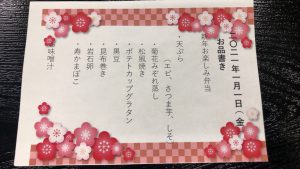 二〇二一年一月一日（金
お品書き
新年お楽しみ弁当
・天ぷら
（エビ、さつま芋、しそ
・菊花みぞれ蒸し
・松風焼き
・ポテトカップグラタン
・黒豆
・昆布巻き
・岩石卵
・寿かまぼこ
味噌汁